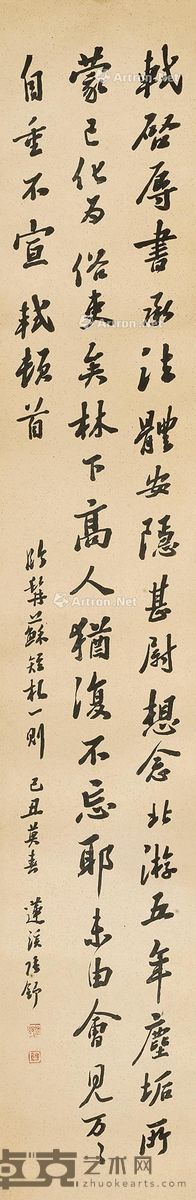 軾啟辱書承法體安隱甚尉想念北游五年塵垢所
蒙已化為俗吏矣林下高人猶復不忘耶未由會見万万
自重不宣軾頓首
臨髯蘇短札一則 己丑莫春 蓮溪張舒
Artron.Net
卓克艺术网
www.zhuokearts.com